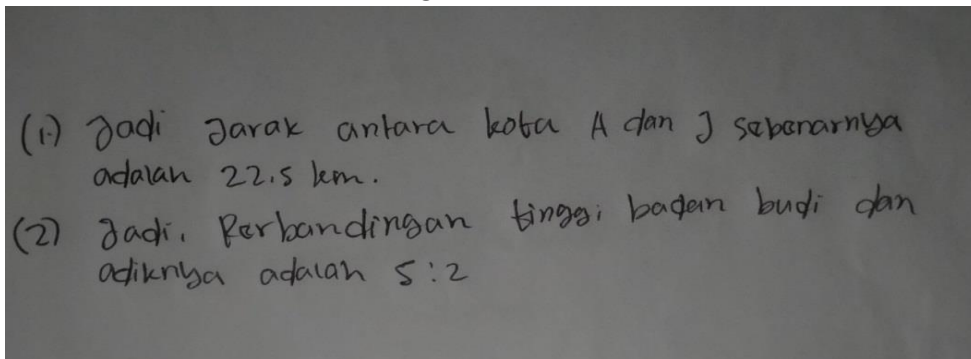 (1.) Jadi Jarak antara kota A dan J sebenarnya
adalah 22.5 km.
(2) Jadi, Perbandingan tinggi badan budi dan
adiknya adalah 5:2